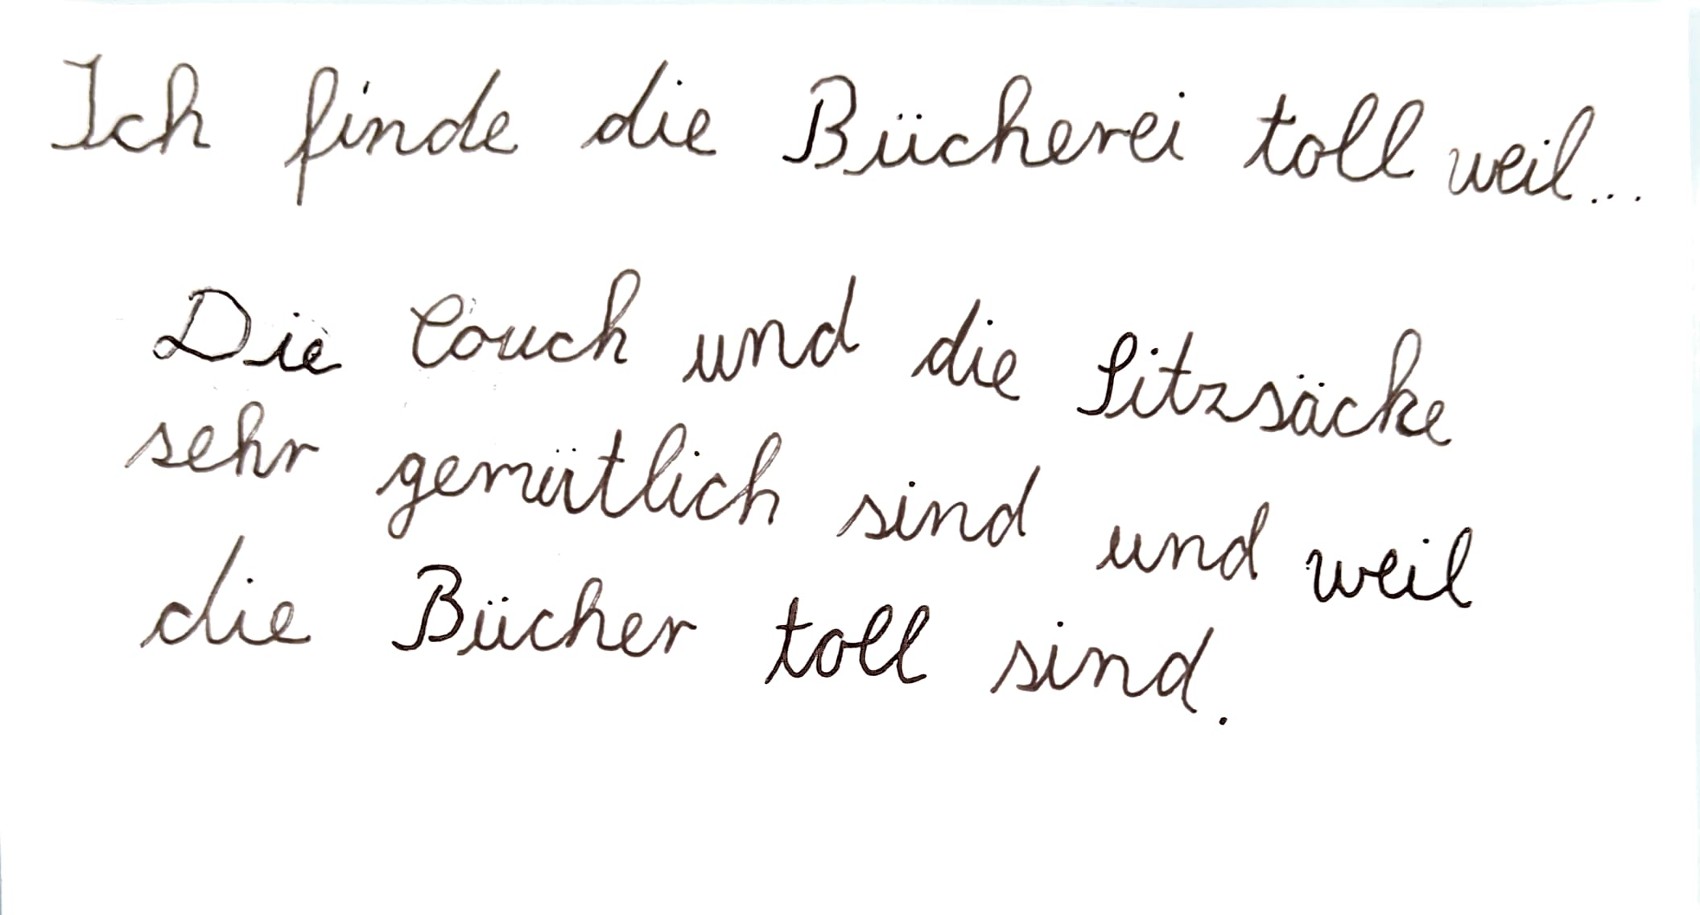 Ich finde die Bücherei toll weil...
Die Couch und die Sitzsäcke
sehr gemütlich sind und weil
die Bücher toll sind.